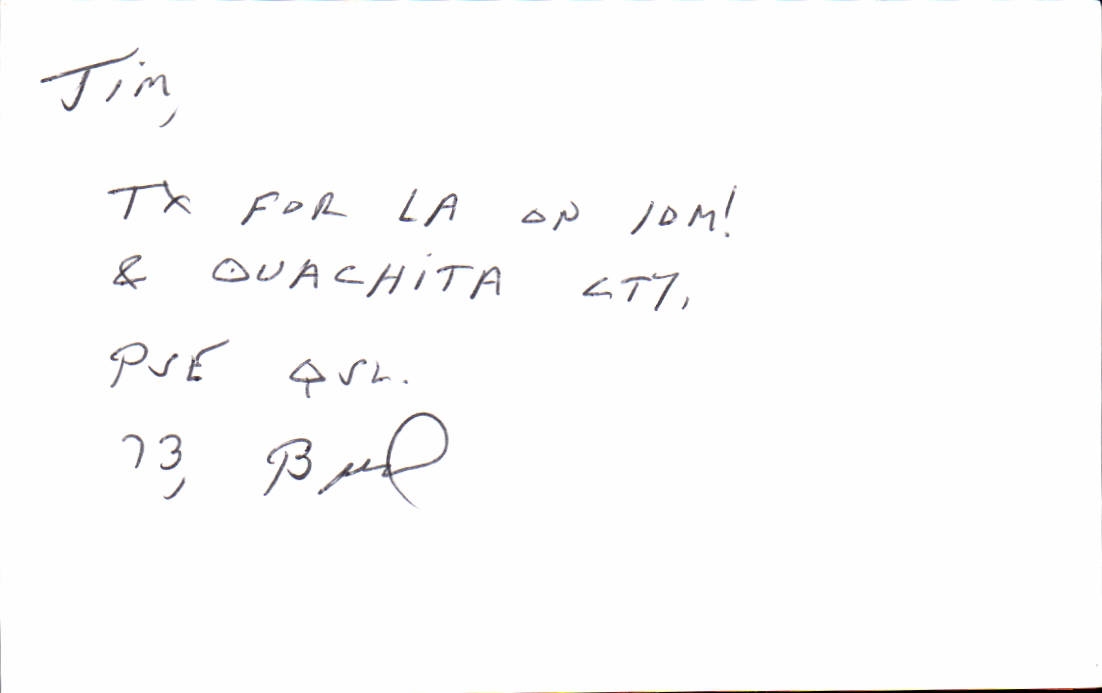 Jim,
TX FOR LA ON 10M!
& OUACHITA CTY,
PSE QSL.
73,